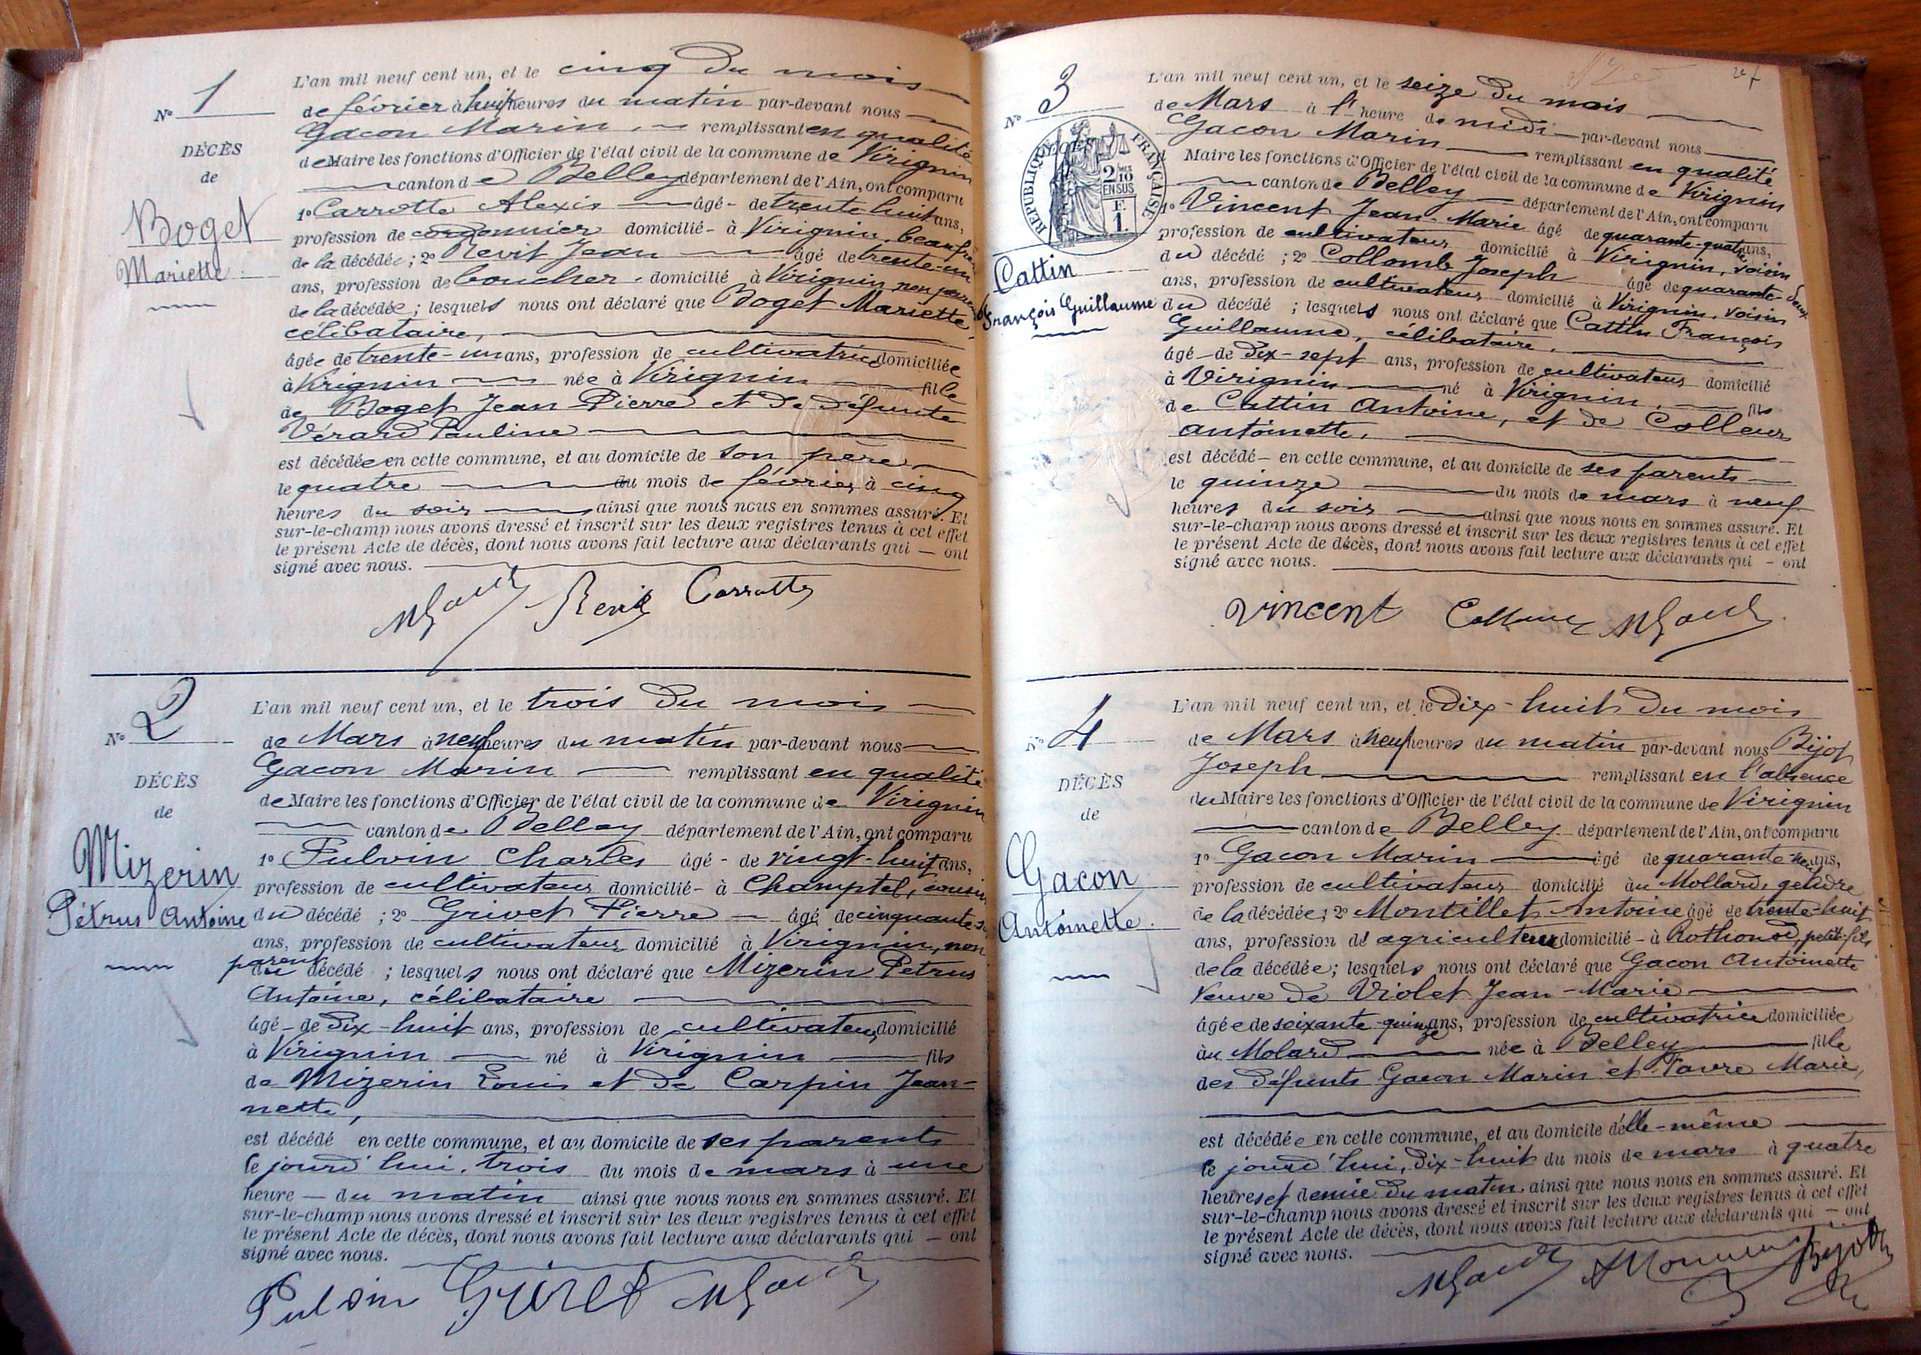 N° 1
DÉCÈS
de
Boget
Mariette
L'an mil neuf cent un, et le cinq du mois
de février à huit heures du matin par-devant nous
Gacon Marin remplissant en qualité
de Maire les fonctions d'Officier de l'état civil de la commune de Virignin
canton de Belley département de l'Ain, ont comparu
1° Carrotte Alexis âgé de trente huit ans,
profession de cordonnier domicilié à Virignin, beau frère
de la décédée; 2° Revit Jean âgé de trente-un
ans, profession de boucher domicilié à Virignin non parent
de la décédée; lesquels nous ont déclaré que Boget Mariette,
célibataire,
âgée de trente-un ans, profession de cultivatrice domiciliée
à Virignin née à Virignin fille
de Boget Jean Pierre et de défunte
Vérard Pauline
est décédée en cette commune, et au domicile de son père
le quatre du mois de février à cinq
heures du soir ainsi que nous nous en sommes assuré. Et
sur-le-champ nous avons dressé et inscrit sur les deux registres tenus à cet effet
le présent Acte de décès, dont nous avons fait lecture aux déclarants qui — ont
signé avec nous.
MGacon Revit Carrotte
N° 2
DÉCÈS
de
Mizerin
Pétrus Antoine
L'an mil neuf cent un, et le trois du mois
de Mars à neuf heures du matin par-devant nous
Gacon Marin remplissant en qualité
de Maire les fonctions d'Officier de l'état civil de la commune de Virignin
canton de Belley département de l'Ain, ont comparu
1° Fulvin Charles âgé de vingt-huit ans,
profession de cultivateur domicilié à Champtel, cousin
du décédé; 2° Grivet Pierre âgé de cinquante
ans, profession de cultivateur domicilié à Virignin, non
parent du décédé; lesquels nous ont déclaré que Mizerin Pétrus
Antoine, célibataire
âgé de dix-huit ans, profession de cultivateur domicilié
à Virignin né à Virignin fils
de Mizerin Louis et de Carpin Jean-
nette,
est décédé en cette commune, et au domicile de ses parents
le jourd'hui, trois du mois de mars à une
heure — du matin ainsi que nous nous en sommes assuré. Et
sur-le-champ nous avons dressé et inscrit sur les deux registres tenus à cet effet
le présent Acte de décès, dont nous avons fait lecture aux déclarants qui — ont
signé avec nous.
Grivet MGacon
N° 3
RÉPUBLIQUE FRANÇAISE
2/10 EN SUS
F. 1.
DÉCÈS
Cattin
François Guillaume
L'an mil neuf cent un, et le seize du mois
de Mars à l' heure de midi par-devant nous
Gacon Marin remplissant en qualité
d Maire les fonctions d'Officier de l'état civil de la commune de Virignin
canton de Belley département de l'Ain, ont comparu
1° Vincent Jean-Marie âgé de quarante-quatre ans,
profession de cultivateur domicilié à Virignin, voisin
du décédé; 2° Collomb Joseph âgé de quarante-deux
ans, profession de cultivateur domicilié à Virignin, voisin
du décédé; lesquels nous ont déclaré que Cattin François
Guillaume, célibataire,
âgé de dix-sept ans, profession de cultivateur domicilié
à Virignin né à Virignin, fils
de Cattin Antoine, et de Colleur
Antoinette,
est décédé en cette commune, et au domicile de ses parents
le quinze du mois de mars à neuf
heures du soir ainsi que nous nous en sommes assuré. Et
sur-le-champ nous avons dressé et inscrit sur les deux registres tenus à cet effet
le présent Acte de décès, dont nous avons fait lecture aux déclarants qui — ont
signé avec nous.
Vincent MGacon
N° 4
DÉCÈS
de
Gacon
Antoinette
L'an mil neuf cent un, et le dix-huit du mois
de Mars à neuf heures du matin par-devant nous Bijot
Joseph remplissant en l'absence
du Maire les fonctions d'Officier de l'état civil de la commune de Virignin
canton de Belley département de l'Ain, ont comparu
1° Gacon Marin âgé de quarante ans,
profession de cultivateur domicilié au Mollard, gendre
de la décédée; 2° Montillet Antoine âgé de trente-huit
ans, profession d'agriculteur domicilié à Rothonod, petit-fils
de la décédée; lesquels nous ont déclaré que Gacon Antoinette
veuve de Violet Jean-Marie
âgée de soixante-quinze ans, profession de cultivatrice domiciliée
au Molard née à Belley fille
des défunts Gacon Marin et Favre Marie,
est décédée en cette commune, et au domicile d'elle-même
le jourd'hui, dix-huit du mois de mars à quatre
heures et demie du matin ainsi que nous nous en sommes assuré. Et
sur-le-champ nous avons dressé et inscrit sur les deux registres tenus à cet effet
le présent Acte de décès, dont nous avons fait lecture aux déclarants qui — ont
signé avec nous.
MGacon Bijot